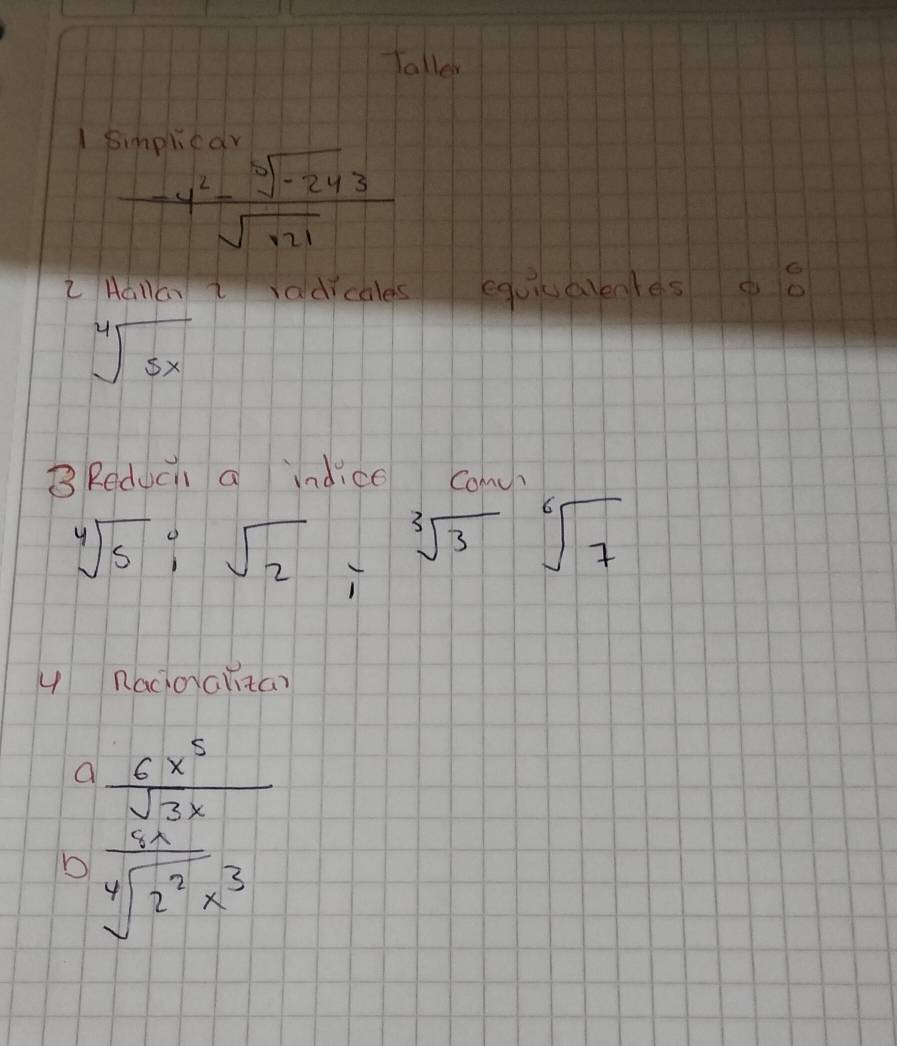 Taller
1 Simplicar
-4² - ⁵√-243
√121
2 Hallar 2 radicales equivalentes a :
⁴√5x
3 Reducir a indice comun
⁴√5 ; √2 ; ³√3 ⁶√7
4 Racionalizar
a 6x⁵
√3x
b 8x
⁴√2² x³